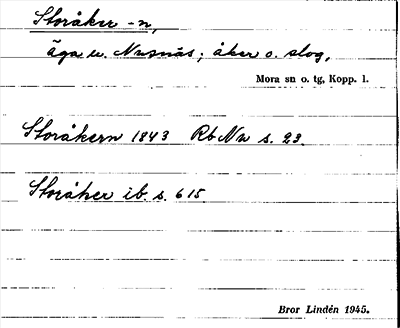 Storåker -n,
äga u. Nusnäs; åker o. slog,
Mora sn o. tg, Kopp. l.
Storåkern 1843 Rb Nu s. 23.
Storåker ib. s. 615
Bror Lindén 1945.